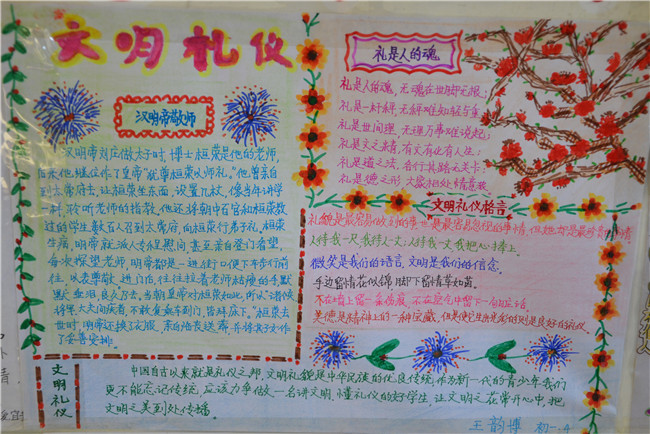 文明礼仪
汉明帝敬师
汉明帝刘庄做太子时，博士桓荣是他的老师，
后来他继位作了皇帝"犹尊桓荣以师礼"。他曾亲自
到太常府去，让桓荣坐东面，设置几杖，像当年讲学
一样，聆听老师的指教。他还将朝中百官和桓荣教
过的学生数百人召到太常府，向桓荣行弟子礼。桓荣
生病，明帝就派人专程慰问，甚至亲自登门看望。
每次探望老师，明帝都是一进街口便下车步行前
往，以表尊敬。进门后，往往拉着老师枯瘦的手默
默垂泪，良久乃去。当朝皇帝对桓荣如此，所以"诸侯
将军、大夫问疾者，不敢复乘车到门，皆拜床下"。桓荣去
世时，明帝还换了衣服，亲自临丧送葬，并将其子女作
了妥善安排。
礼是人的魂
礼是人的魂，无魂在世
礼是一种秤，无秤难知轻与重
礼是世间理，无理万事难说起；
礼是文之精，有文有化有人生；
礼是道之法，各行其路无关卡；
礼是德之形，大家相处情意敬。
文明礼仪格言
礼貌是最容易做到的事，也是最容易忽视的事情，但她却是最珍贵的事情
人敬我一尺，我敬人一丈；人敬我一丈，我把人心上捧。
微笑是我们的语言，文明是我们的信念。
手边留情花似锦，脚下留情草如茵。
不在墙上留一条伤痕，不在空气中留下一句脏话。
美德是精神上的一种宝藏，但是使它生出光彩的则是良好的礼仪。
文明礼仪
中国自古以来就是礼仪之邦，文明礼貌是中华民族的优良传统，作为新一代的青少年我们
更不能忘记传统，应该力争做一名讲文明，懂礼仪的好学生，让文明之花常开心中，把
文明之美到处传播。
王韵博 初一.4